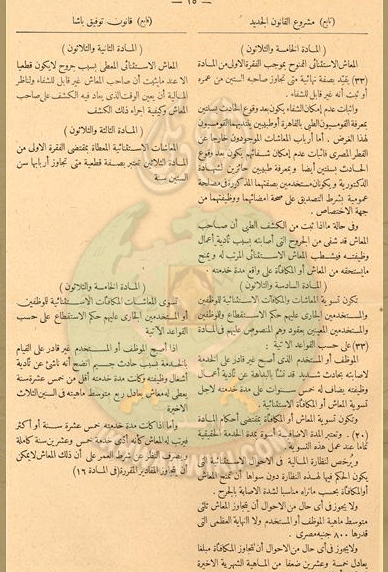 — ١٥ —
(تابع) مشروع القانون الجديد
( المادة الخامسة والثلاثون )
المعاش الاستثنائى الممنوح بموجب الفقرة الاولى من المادة
(٣٣) يقيّد بصفة نهائية متى تجاوز صاحبه الستين من عمره
أو ثبت أنه غير قابل للشفاء .
واثبات عدم امكان الشفاء يكون بعد وقوع الحادث بسنتين
بمعرفة القومسيون الطبى بالقاهرة أو طبيبين يندبهما القومسيون
لهذا الغرض . أما أرباب المعاشات الموجودون خارجا عن
القطر المصرى فاثبات عدم امكان شفائهم يكون بعد وقوع
الحادث بسنتين أيضا وبمعرفة طبيبين حائزين لشهادة
الدكتورية ويكونان مستخدمين بصفتهما المذكورة فى مصلحة
عمومية بشرط التصديق على صحة امضائهما ووظيفتهما من
جهة الاختصاص .
وفى حالة ما اذا ثبت من الكشف الطبى أن صاحب
المعاش قد شفى من الجروح التى أصابته بسبب تأدية أعمال
وظيفته فيشطب المعاش الاستثنائى المرتب له ويمنح
مايستحقه من المعاش أو المكافأة على واقع مدة خدمته .
( المادة السادسة والثلاثون )
تكون تسوية المعاشات والمكافآت الاستثنائية للموظفين
والمستخدمين الجارى عليهم حكم الاستقطاع والموظفين
والمستخدمين المعينين بعقود وهم المنصوص عليهم فى المادة
(٣٣) على حسب القواعد الآتية :
الموظف أو المستخدم الذى أصبح غير قادر على الخدمة
لاصابته بحادث شديد قد نشأ بالداهة عن تأدية أعمال
وظيفته يضاف له خمس سنوات على مدة خدمته لاجل
تسوية المعاش أو المكافأة الاستثنائية .
وتكون تسوية المعاش أو المكافأة بمقتضى أحكام المادة
(٢٠) . وتعتبر المدة الاضافية أسوة بمدة الخدمة الحقيقية
تماما عند عمل هذه التسوية .
ويرخص لنظارة المالية فى الاحوال الاستثنائية التى
يكون الحكم فيها لهذه النظارة دون سواها أن تمنح المعاش
أو المكافأة بحسب ماتراه مناسبا لشدة الاصابة بالجرح .
ولا يجوز فى أى حال من الاحوال أن يتجاوز المعاش ثلثى
متوسط ماهية الموظف أو المستخدم ولا النهاية العظمى التى
قدرها ٨٠٠ جنيه مصرى .
ولا يجوز فى أى حال من الاحوال أن تتجاوز المكافأة مبلغا
يعادل خمسة وعشرين ضعفا من الماهية الشهرية الاخيرة
(تابع) قانون توفيق باشا
( المادة الثانية والثلاثون )
المعاش الاستثنائى المعطى بسبب جروح لايكون قطعيا
الا عند مايثبت أن صاحب المعاش غير قابل للشفاء ولناظر
المالية أن يعين الوقت الذى يعاد فيه الكشف على صاحب
المعاش وكيفية اجراء ذلك الكشف
( المادة الثالثة والثلاثون )
المعاشات الاستثنائية المعطاة بمقتضى الفقرة الاولى من
المادة الثلاثين تعتبر بصفة قطعية متى تجاوز أربابها سن
الستين سنة
( المادة الخامسة والثلاثون )
تسوى المعاشات والمكافآت الاستثنائية للموظفين
أو المستخدمين الجارى عليهم حكم الاستقطاع على حسب
القواعد الآتية
اذا أصبح الموظف أو المستخدم غير قادر على القيام
بالخدمة بسبب حادث جسيم اتضح أنه ناشئ عن تأدية
أشغال وظيفته وكانت مدة خدمته أقل من خمس عشرة سنة
يعطى له معاش يعادل ربع متوسط ماهيته فى السنين الثلاث
الاخيرة
وأما اذا كانت مدة خدمته خمس عشرة سنة أو أكثر
فيرتب له المعاش كأنه أدى خدمة خمس وعشرين سنة كاملة
وبصرف النظر عن شرط العمر على أن ذلك المعاش لا يمكن
أن يتجاوز المقادير المقررة (فى المادة ١٦)